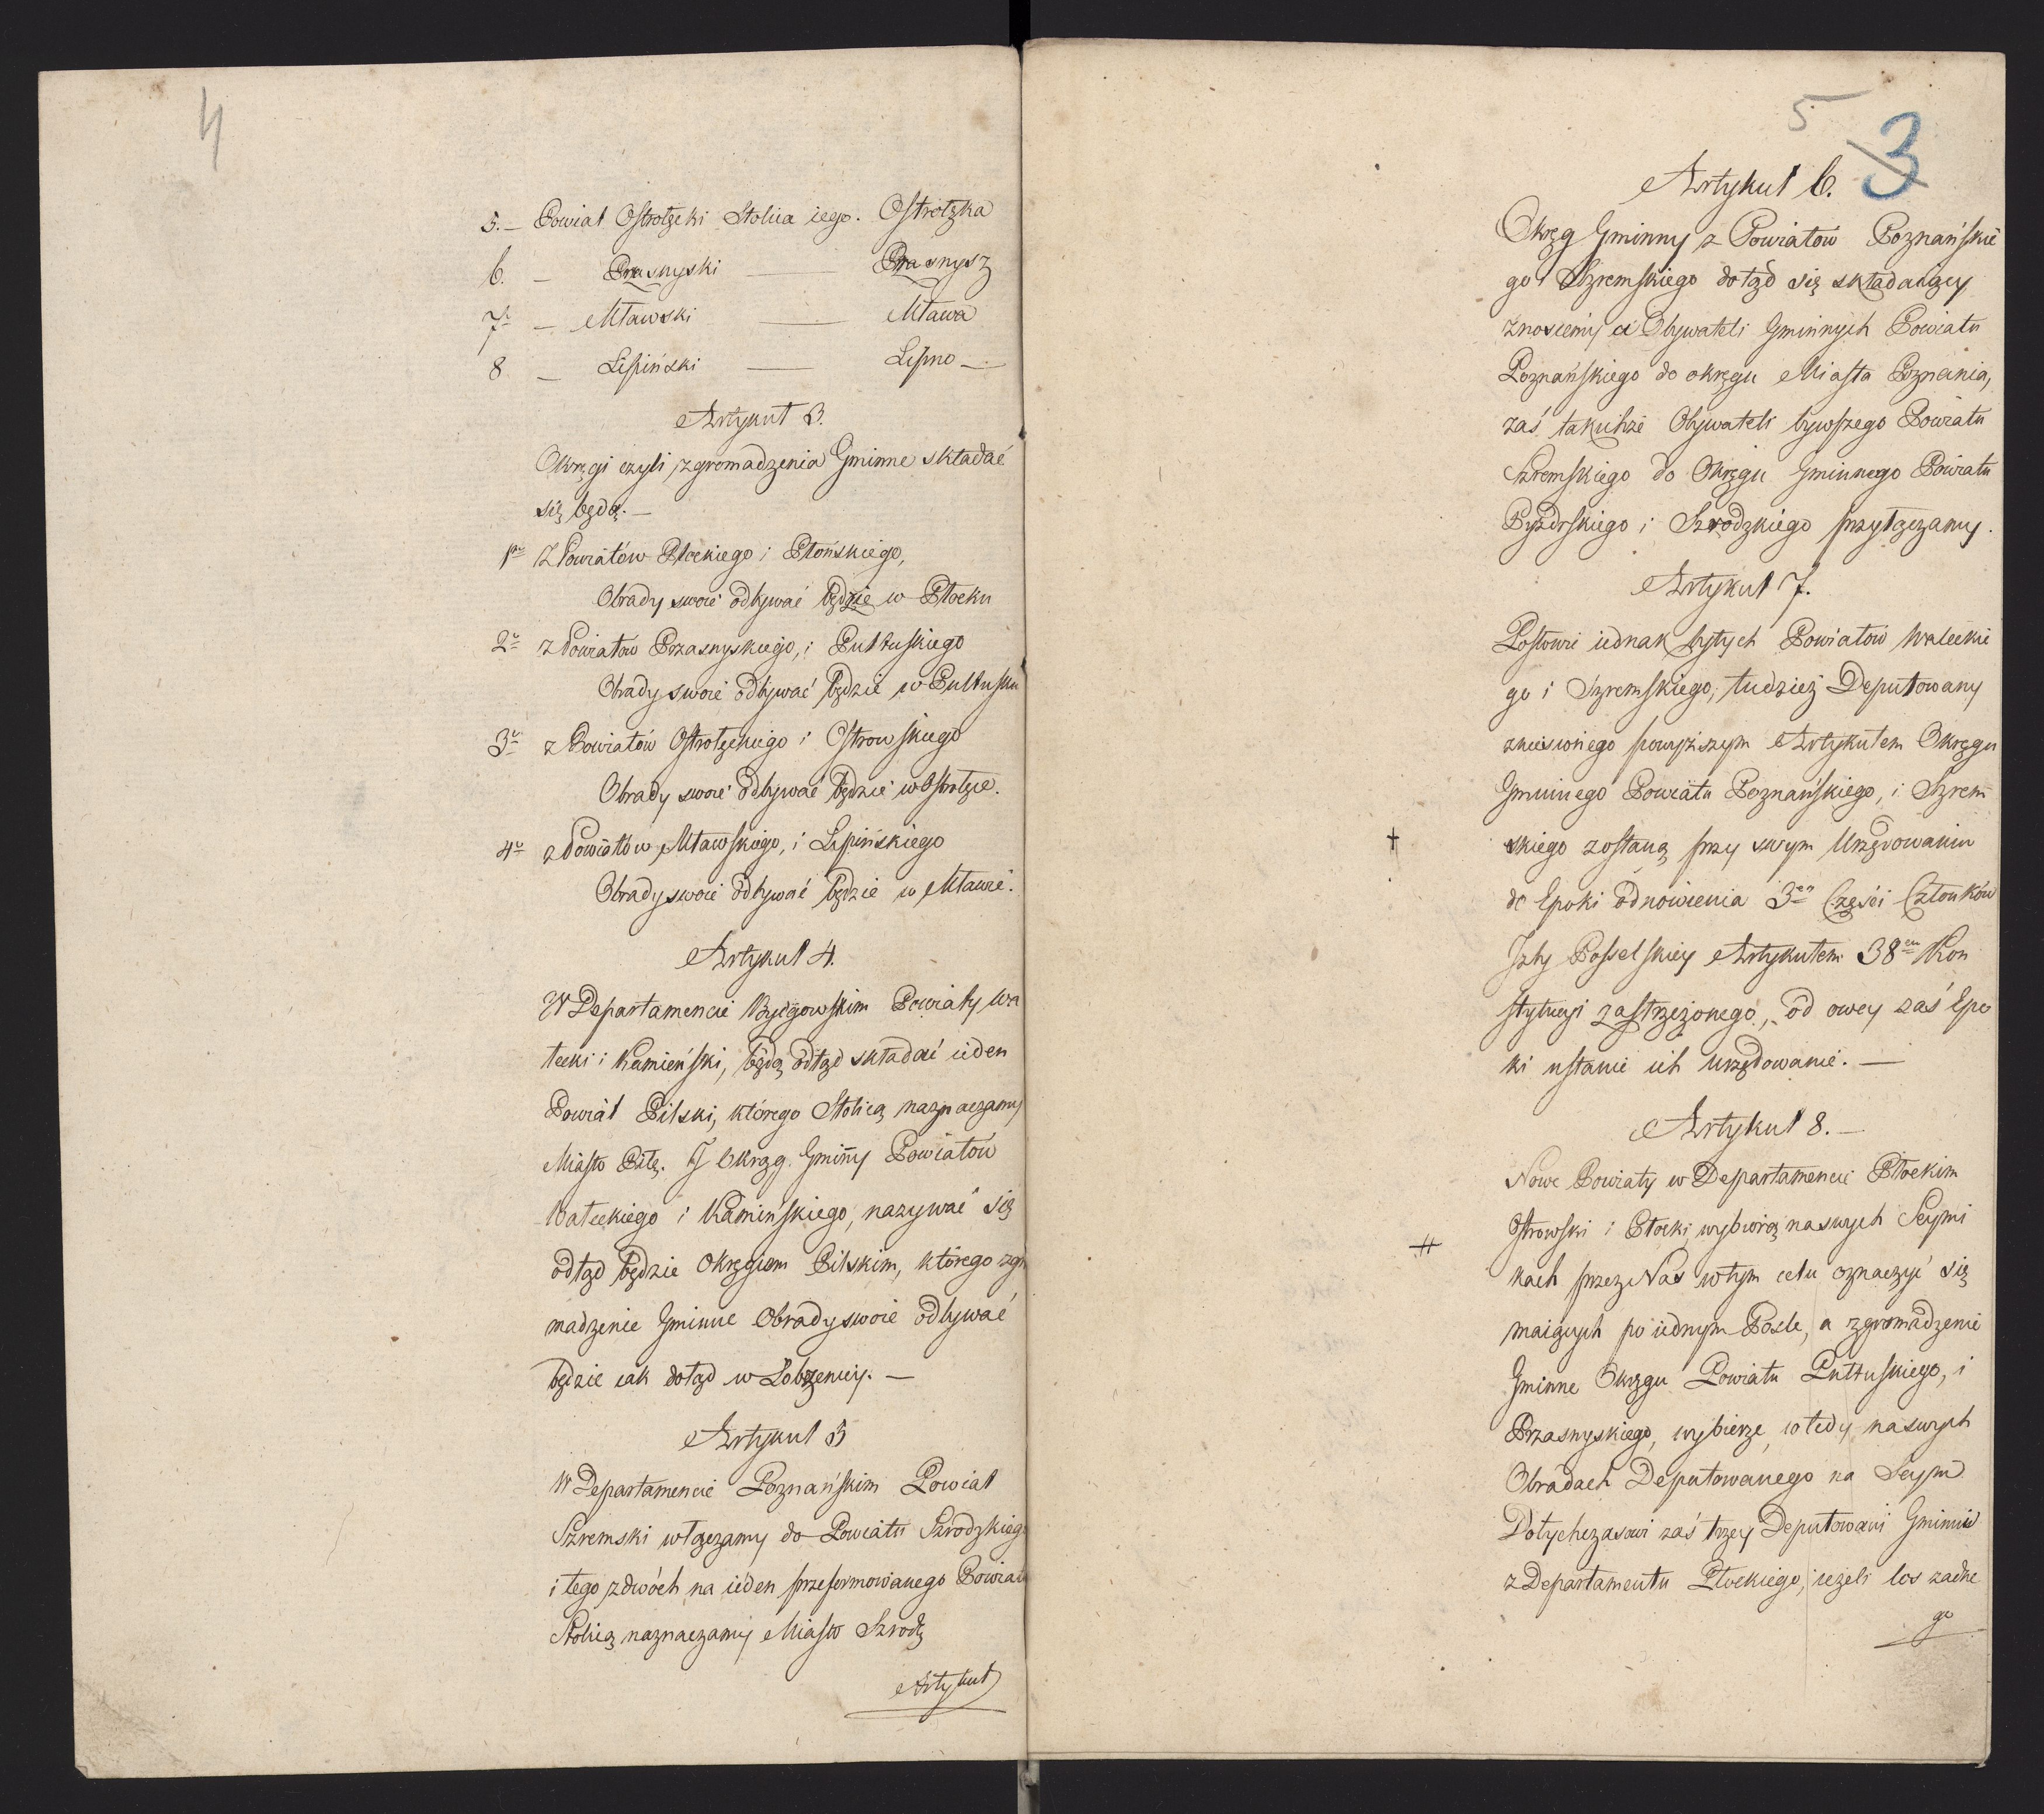 4
5. — Powiat Ostrołęcki Stolica iego. Ostrołęka
6. — Prasnyski — Prasnysz
7. — Mławski — Mława
8 — Lipiński — Lipno —
Artykuł 3.
Okręgi czyli zgromadzenia Gminne składać
się będą. —
1mo Z Powiatów Płockiego i Płońskiego,
Obrady swoie odbywać będzie w Płocku
2o z Powiatów Przasnyskiego, i Pułtuskiego
Obrady swoie odbywać będzie w Pułtusku
3o z Powiatów Ostrołęckiego i Ostrowskiego
Obrady swoie odbywać będzie w Ostrołęce.
4o z Powiatów Mławskiego, i Lipińskiego
Obrady swoie odbywać będzie w Mławie.
Artykuł 4.
W Departamencie Bydgowskim Powiaty Wa
łecki i Kamieński, będą odtąd składać ieden
Powiat Pilski, którego Stolicą naznaczamy
Miasto Piłę. I Okrąg Gminny Powiatów
Wałeckiego i Kamieńskiego, nazywać się
odtąd będzie Okręgiem Pilskim, którego zgro
madzenie Gminne Obrady swoie odbywać
będzie iak dotąd w Łobżenicy. —
Artykuł 5
W Departamencie Poznańskim Powiat
Szremski włączamy do Powiatu Szrodzkiego
i tego z dwóch na ieden przeformowanego Powiatu
Stolicą naznaczamy Miasto Szrodę
Artykuł
5
3
Artykuł 6.
Okręg Gminny z Powiatów Poznańskie
go i Szremskiego dotąd się składaiący
znosiemy a Obywateli Gminnych Powiatu
Poznańskiego do okręgu Miasta Poznania,
zaś takichże Obywateli bywszego Powiatu
Szremskiego do Okręgu Gminnego Powiatu
Pyzdrskiego i Szrodzkiego przyłączamy.
Artykuł 7.
Posłowie iednak bytych Powiatów Wałeckie
go i Szremskiego, tudzież Deputowany
zniesionego powyższym Artykułem Okręgu
Gminnego Powiatu Poznańskiego, i Szrem
† skiego zostaną przy swym Urzędowaniu
do Epoki odnowienia 3ey Części Członków
Izby Posselskiey Artykułem 38m Kon
stytucyi zastrzeżonego, od owey zaś Epo
ki ustanie ich urzędowanie. —
Artykuł 8. —
Nowe Powiaty w Departamencie Płockim
Ostrowski i Płocki, wybiorą na swych Seymi
# kach przez Nas w tym celu oznaczyć się
maiących po iednym Pośle, a zgromadzenie
Gminne Okręgu Powiatu Pułtuskiego, i
Przasnyskiego, wybierze wtedy na swych
Obradach Deputowanego na Seym.
Dotychczasowi zaś trzey Deputowani Gminni
z Departamentu Płockiego, ieżeli los zadne
go